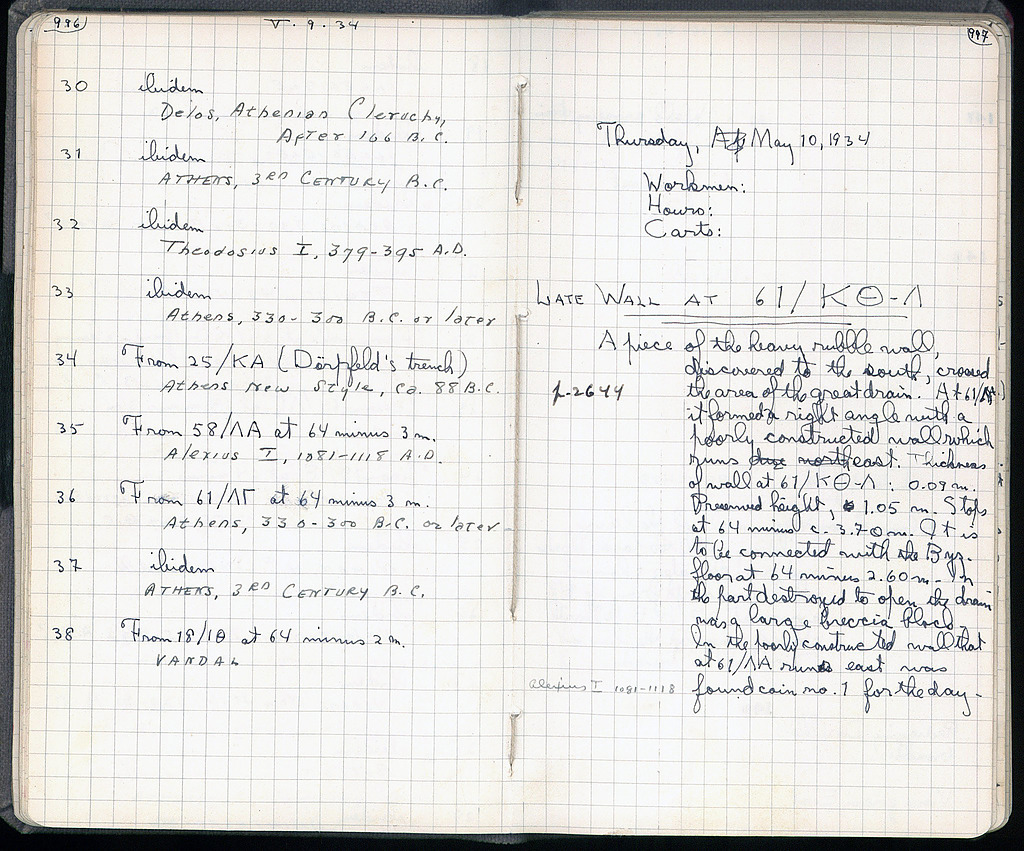 996
V. 9. 34
30 ibidem
Delos, Athenian Cleruchy,
After 166 B.C.
31 ibidem
ATHENS, 3RD CENTURY B.C.
32 ibidem
Theodosius I, 379-395 A.D.
33 ibidem
Athens, 330-300 B.C. or later
34 From 25/KA (Dörpfeld's trench)
Athens New Style, ca. 88 B.C.
35 From 58/ΛA at 64 minus 3 m.
Alexius I, 1081-1118 A.D.
36 From 61/ΛΓ at 64 minus 3 m.
Athens, 330-300 B.C. or later
37 ibidem
ATHENS, 3RD CENTURY B.C.
38 From 18/ΙΘ at 64 minus 2 m.
VANDAL
997
Thursday, May 10, 1934
Workmen:
Hours:
Carts:
LATE WALL AT 61/ΚΘ-Λ
A piece of the heavy rubble wall,
discovered to the south, crossed
the area of the great drain. At 61/
p-2644
it formed a right angle with a
poorly constructed wall which
runs due northeast. Thickness
of wall at 61/ΚΘ-Λ: 0.09 m.
Preserved height, 1.05 m. Stops
at 64 minus c. 3.70 m. It is
to be connected with the Byz.
floor at 64 minus 2.60 m. In
the part destroyed to open the drain
was a large breccia block.
In the poorly constructed wall that
at 61/ΛA runs east was
Alexius I 1081-1118
found coin no. 1 for the day-